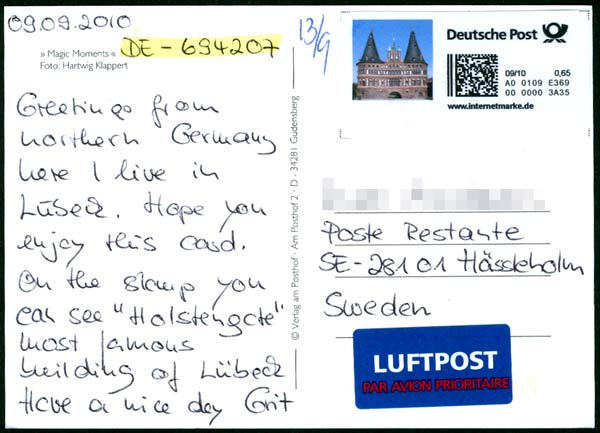 09.09.2010
» Magic Moments «
DE - 694207
Foto: Hartwig Klappert
Greetings from
northern Germany
here I live in
Lübeck. Hope you
enjoy this card.
On the stamp you
can see "Holstengate"
most famous
building of Lübeck
Have a nice day Grit
© Verlag am Posthof · Am Posthof 2 · D - 34281 Gudensberg
13/9
Deutsche Post
09/10 0,65
A0 0109 E369
00 0000 3A35
www.internetmarke.de
Poste Restante
SE-281 01 Hässleholm
Sweden
LUFTPOST
PAR AVION PRIORITAIRE